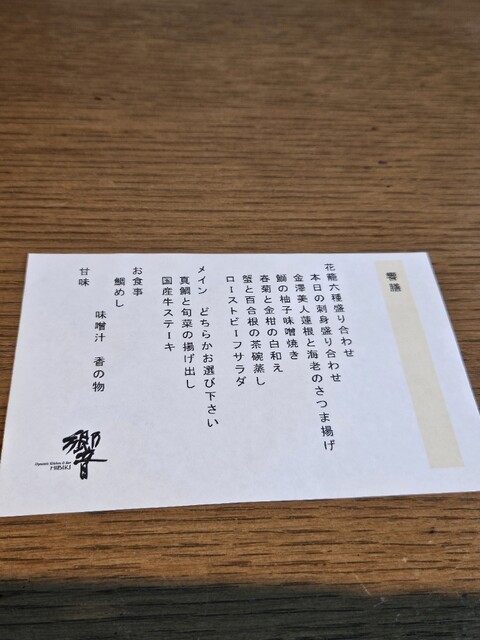 響膳
花籠六種盛り合わせ
本日の刺身盛り合わせ
金澤美人蓮根と海老のさつま揚げ
鰤の柚子味噌焼き
春菊と金柑の白和え
蟹と百合根の茶碗蒸し
ローストビーフサラダ
メイン どちらかお選び下さい
真鯛と旬菜の揚げ出し
国産牛ステーキ
お食事
鯛めし
味噌汁 香の物
甘味
響
Japanese Kitchen & Bar
HIBIKI